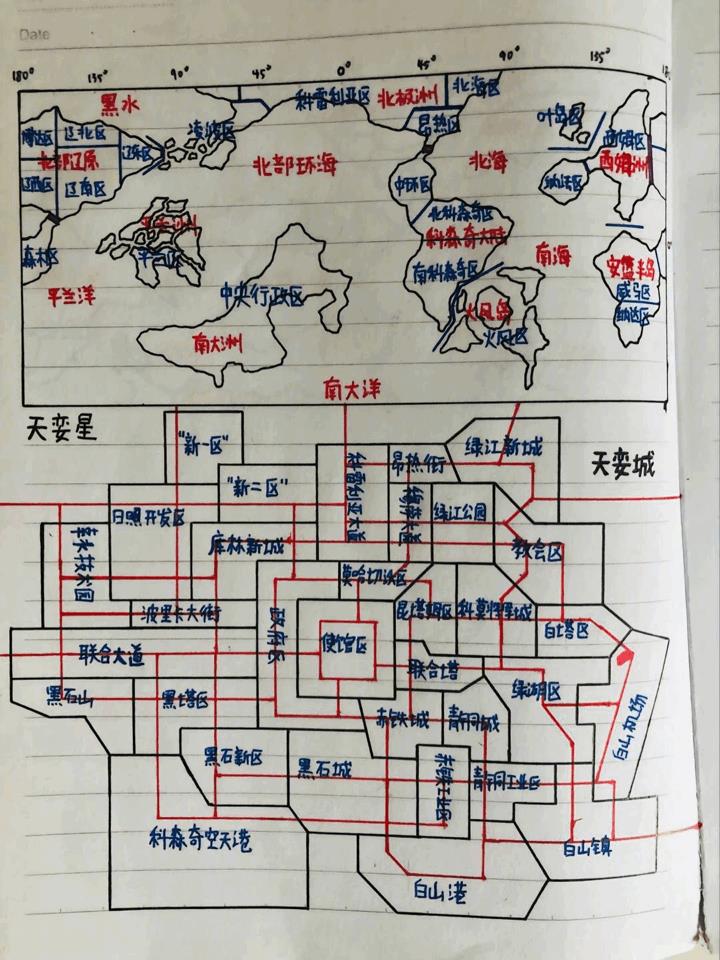 Date
180° 135° 90° 45° 0° 45° 90° 135°
黑水
科雷利亚区
北极洲
北海区
凌波区
昂热区
叶岛区
辽北区
辽东区
北部辽原
辽西区
辽南区
北部环海
北海
西姆区
西姆洲
纳法区
中环区
北科森奇区
科森奇大陆
南科森奇区
南海
森林区
平兰区
平兰洋
中央行政区
南大洲
火凤岛
火凤区
安篮半岛
威引区
纳达区
南大洋
天娈星
天娈城
"新一区"
"新二区"
科雷利亚大道
昂热街
绿江新城
日照开发区
库林新城
绿江公园
教会区
莫哈切沃区
波里卡大街
政府区
使馆区
昆塔姆区
白塔区
联合大道
联合塔
绿湖区
黑石山
黑塔区
赤铁城
青铜城
白山机场
黑石新区
黑石城
赤铁工业区
青铜工业区
科森奇空天港
白山镇
白山港